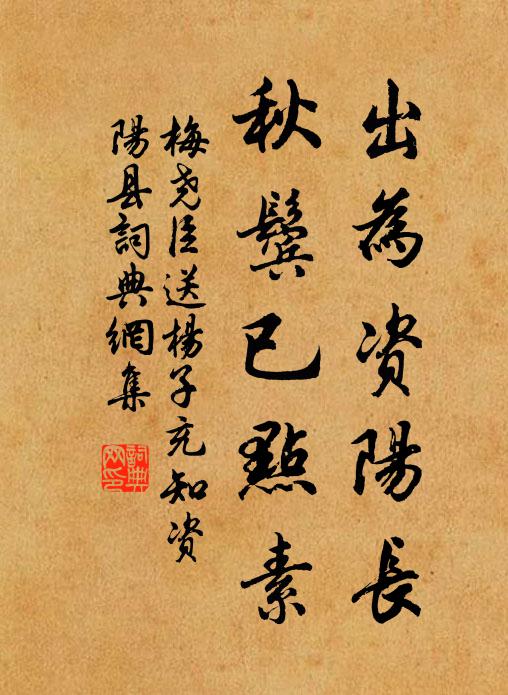 出為资陽長
秋鬢已點素
梅尧臣送楊子充知资
陽县詞典網集
詞典
网印